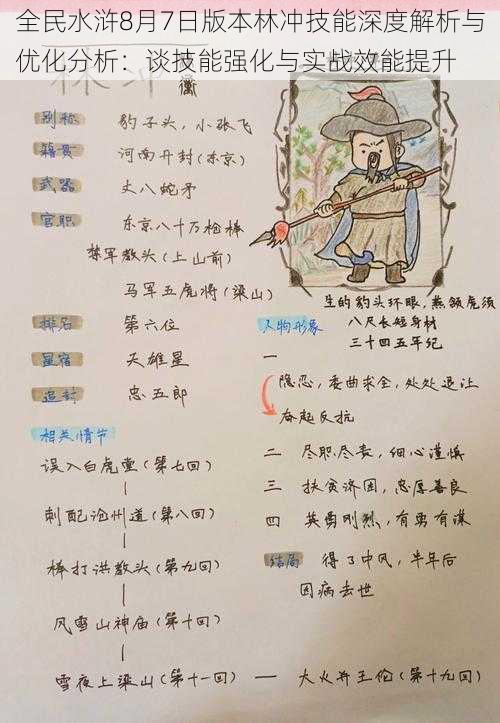 全民水浒8月7日版本林冲技能深度解析与
优化分析：谈技能强化与实战效能提升
林冲
别称 豹子头，小张飞
籍贯 河南开封(东京)
武器 丈八蛇矛
官职 东京八十万枪棒
禁军教头(上山前)
马军五虎将(梁山)
排名 第六位
星宿 天雄星
追封 忠五郎
生的豹头环眼，燕颔虎须
八尺长短身材
三十四五年纪
人物形象
一
隐忍，委曲求全，处处退让
奋起反抗
二 尽职尽责，细心谨慎
三 扶贫济困，忠厚善良
四 英勇刚烈，有勇有谋
结局 得了中风，半年后
因病去世
相关情节
误入白虎堂(第七回)
刺配沧州道(第八回)
棒打洪教头(第九回)
风雪山神庙(第十回)
雪夜上梁山(第十一回) — 大火并王伦(第十九回)